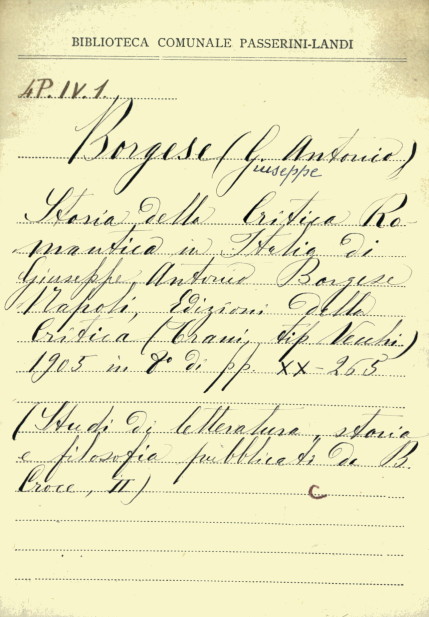 BIBLIOTECA COMUNALE PASSERINI-LANDI
4P.IV.1
Borgese (G. Antonio)
iuseppe
Storia della Critica Ro-
mantica in Italia di
Giuseppe Antonio Borgese
Napoli, Edizioni della
Critica (Trani, tip Vecchi)
1905 in 8° di pp. XX-265
(Studi di letteratura, storia
e filosofia pubblicati da B.
Croce, II)
C